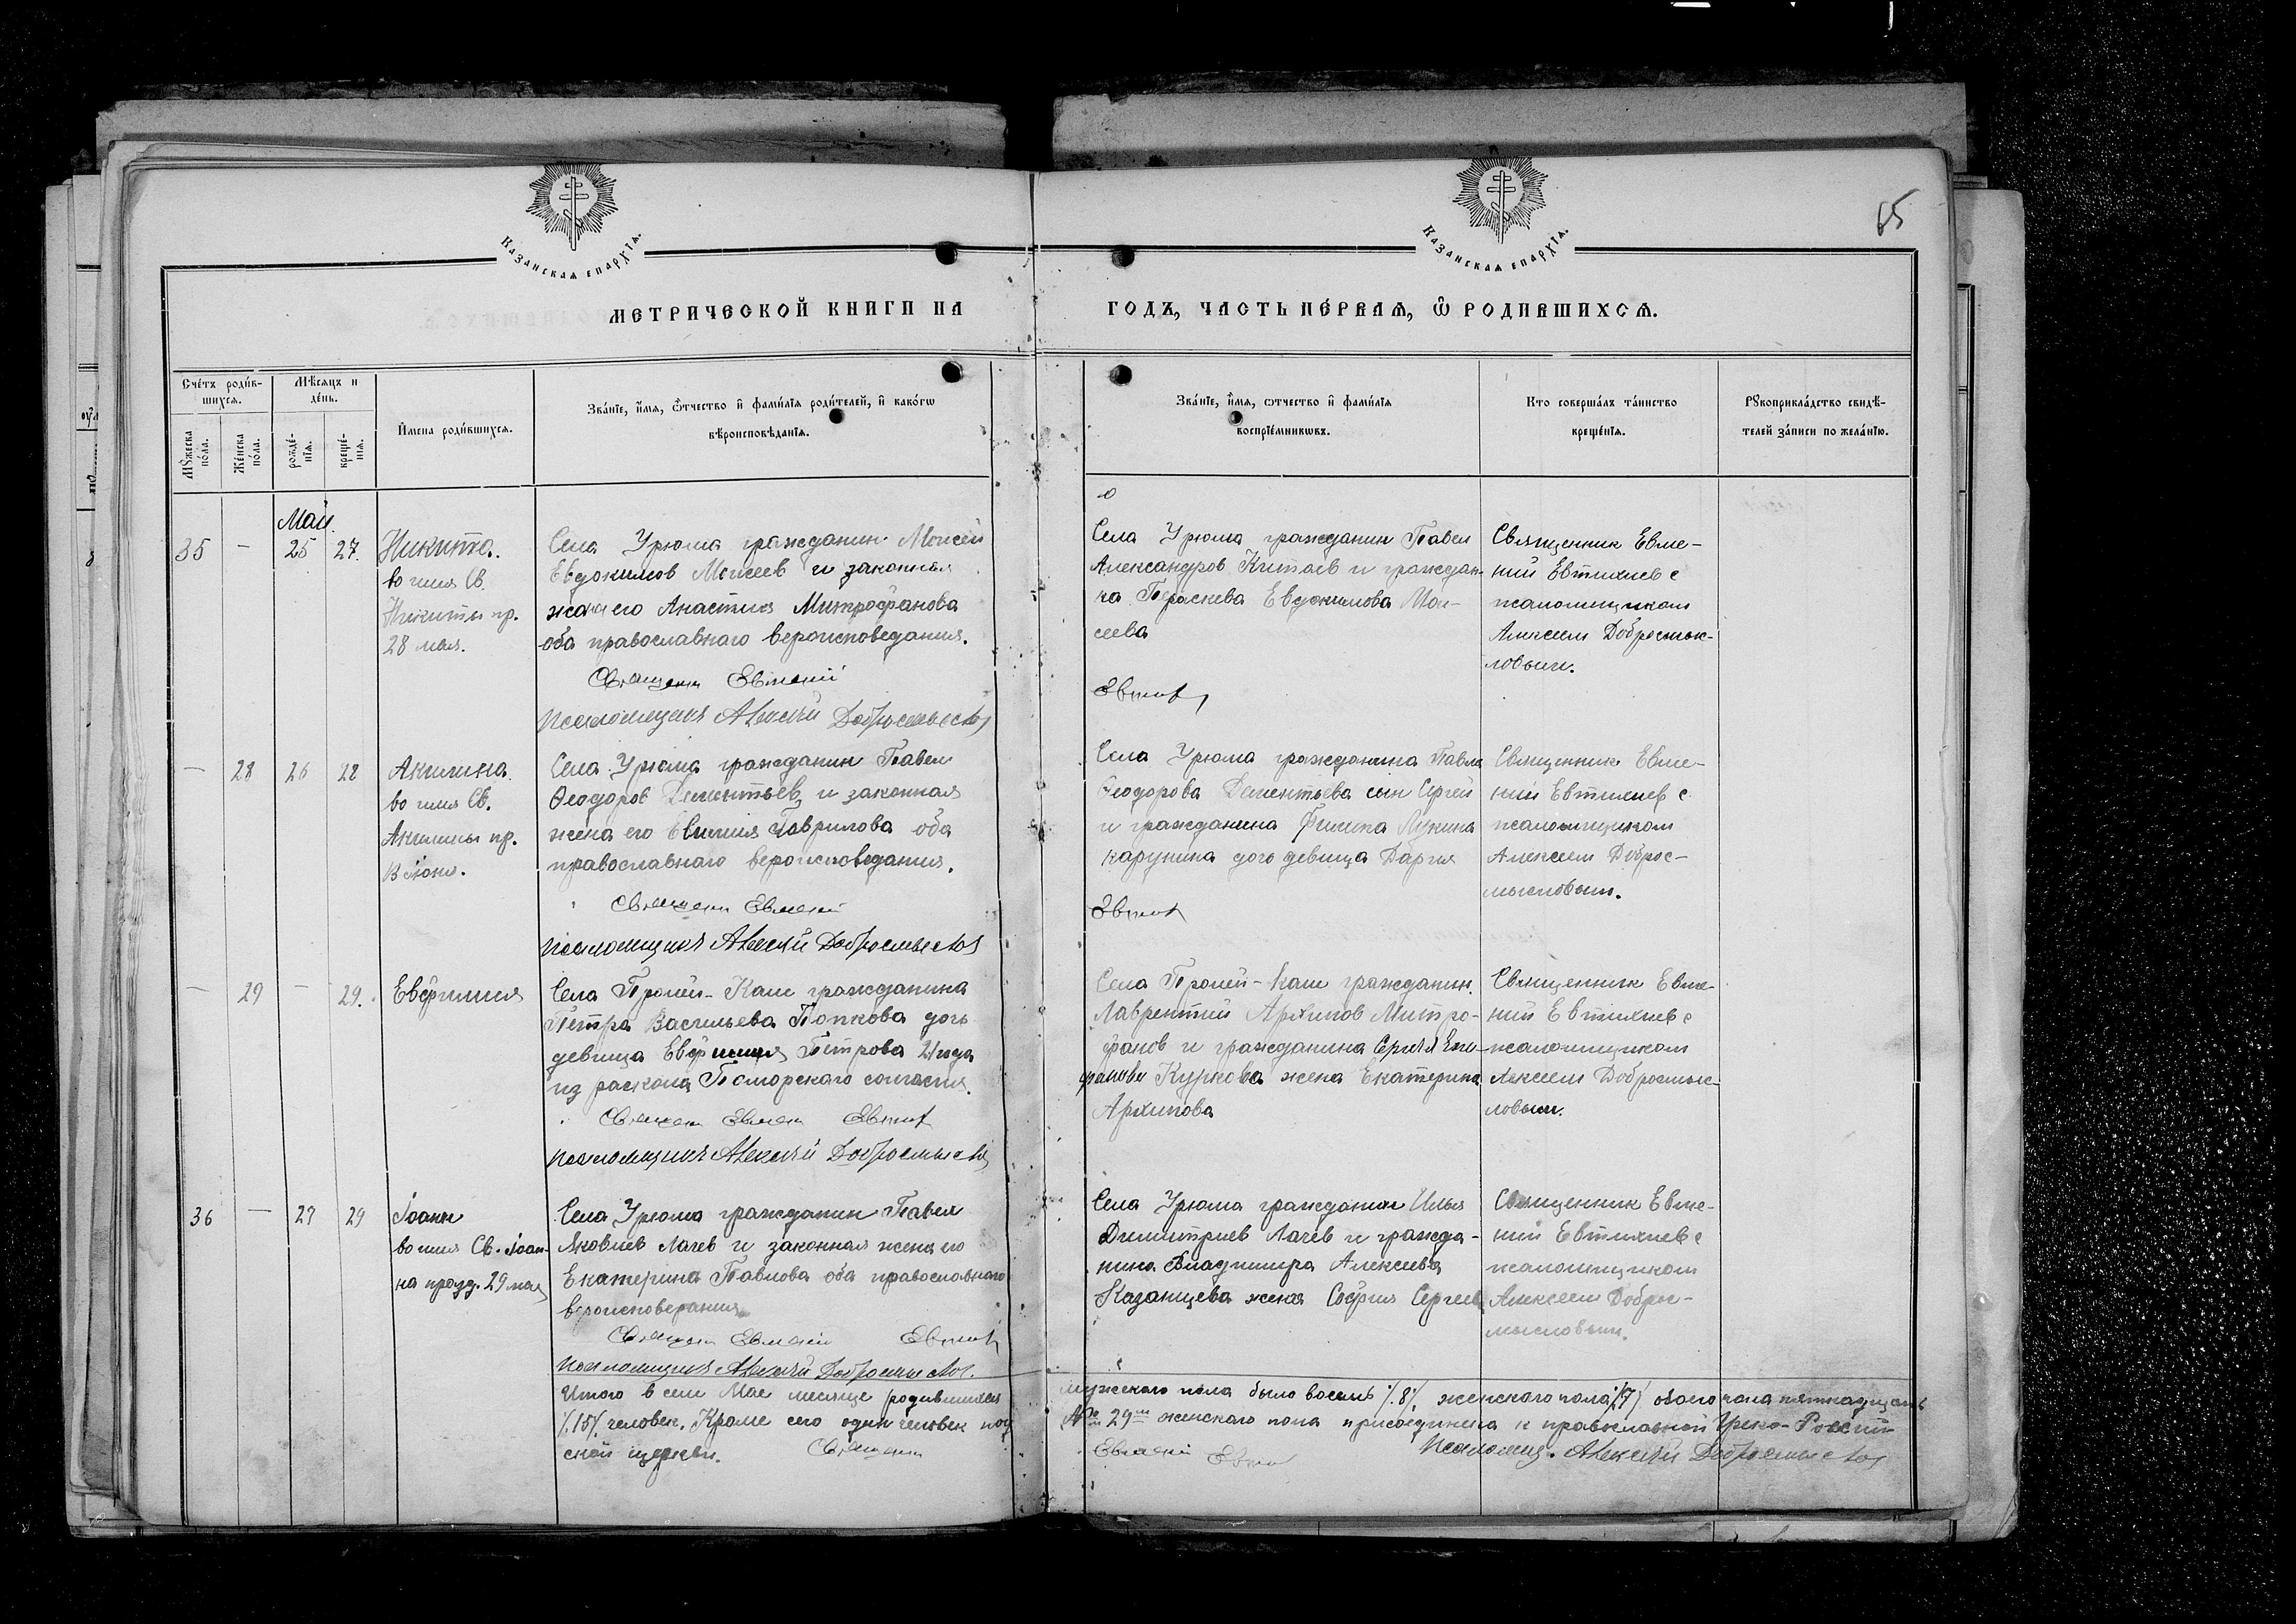 65
КАЗАНСКАЯ ЕПАРХІЯ.
КАЗАНСКАЯ ЕПАРХІЯ.
МЕТРИЧЕСКОЙ КНИГИ НА ГОДЪ, ЧАСТЬ ПЕ́РВАЯ, Ѽ РОДИВШИХСЯ.
Сче́тъ роди́в-
шихся.
Мѣ́сяцъ и
де́нь.
Мꙋ́жеска
по́ла.
Же́нска
по́ла.
рожде́-
нїѧ.
креще́-
нїѧ.
И҆мена роди́вшихсѧ.
Зва́нїе, и҆́мѧ, ѻ҆́тчество и҆ фами́лїѧ роди́телей, и҆ како́гѡ
вѣроисповѣ́данїѧ.
Зва́нїе, и҆́мѧ, ѻтчество и҆ фами́лїѧ
воспрїе́мникѡвъ.
Кто соверша́лъ та́инство
креще́нїѧ.
Рꙋкоприкла́дство свидѣ́-
телей за́писи по жела́нїю.
Май.
35 — 25 27.
Никита.
во имя Св.
Никиты пр.
28 мая.
Села Урюма гражданин Моисей
Евдокимов Моисеев и законная
жена его Анастия Митрофанова
оба православного вероисповедания.
Священ Евмений
Псаломщикъ Алексѣй Добросмыслов
Села Урюма гражданин Павел
Александров Китаев и граждан-
ка Параскева Евдокимова Мои-
сеева
Евтих
Священник Евме-
ний Евтихиев с
псаломщиком
Алексеем Добросмыс-
ловым.
— 28 26 28
Акилина
во имя Св.
Акилины пр.
13 Июня.
Села Урюма гражданин Павел
Феодоров Дементьев и законная
жена его Евгиия Гаврилова оба
православного вероисповедания.
Священ Евмений
Псаломщикъ Алексѣй Добросмыслов
Села Урюма гражданина Павла
Феодорова Дементьева сын Сергей
и гражданина Филипа Лукина
Карунина дочь девица Дария
Евтих
Священник Евме-
ний Евтихиев с
псаломщиком
Алексеем Доброс-
мысловым.
— 29 — 29.
Евфимия
Села Пролей-Каши гражданина
Петра Васильева Попкова дочь
девица Евфимия Петрова 21 года
из раскола Поморского согласия.
Священ Евмен Евтих
Псаломщикъ Алексѣй Добросмыслов
Села Пролей-Каши гражданин
Лаврентий Архипов Митро-
фанов и гражданина Сергея Епи-
фанова Куркова жена Екатерина
Архипова
Священник Евме-
ний Евтихиев с
псаломщиком
Алексеем Добросмыс-
ловым.
36 — 27 29
Иоанн
во имя Св. Иоан-
на празд. 29 мая
Села Урюма гражданин Павел
Яковлев Лачев и законная жена его
Екатерина Павлова оба православного
вероисповедания
Священ Евмений Евтих
Псаломщикъ Алексѣй Добросмыслов.
Села Урюма гражданин Илья
Димитриев Лачев и гражда-
нина Владимира Алексеева
Казанцева жена София Сергеев
Священник Евме-
ний Евтихиев с
псаломщиком
Алексеем Доброс-
мысловым.
Итого в сем Мае месяце родившихся мужского пола было восемь /.8/, женского пола /7/ обоего пола пятнадцать
/.15/. человек. Кроме сего один человек под № 29м женского пола присоединена к православной Греко-Россий
ской церкви. Священ Евмений Евтих Псаломщ. Алексѣй Добросмыслов